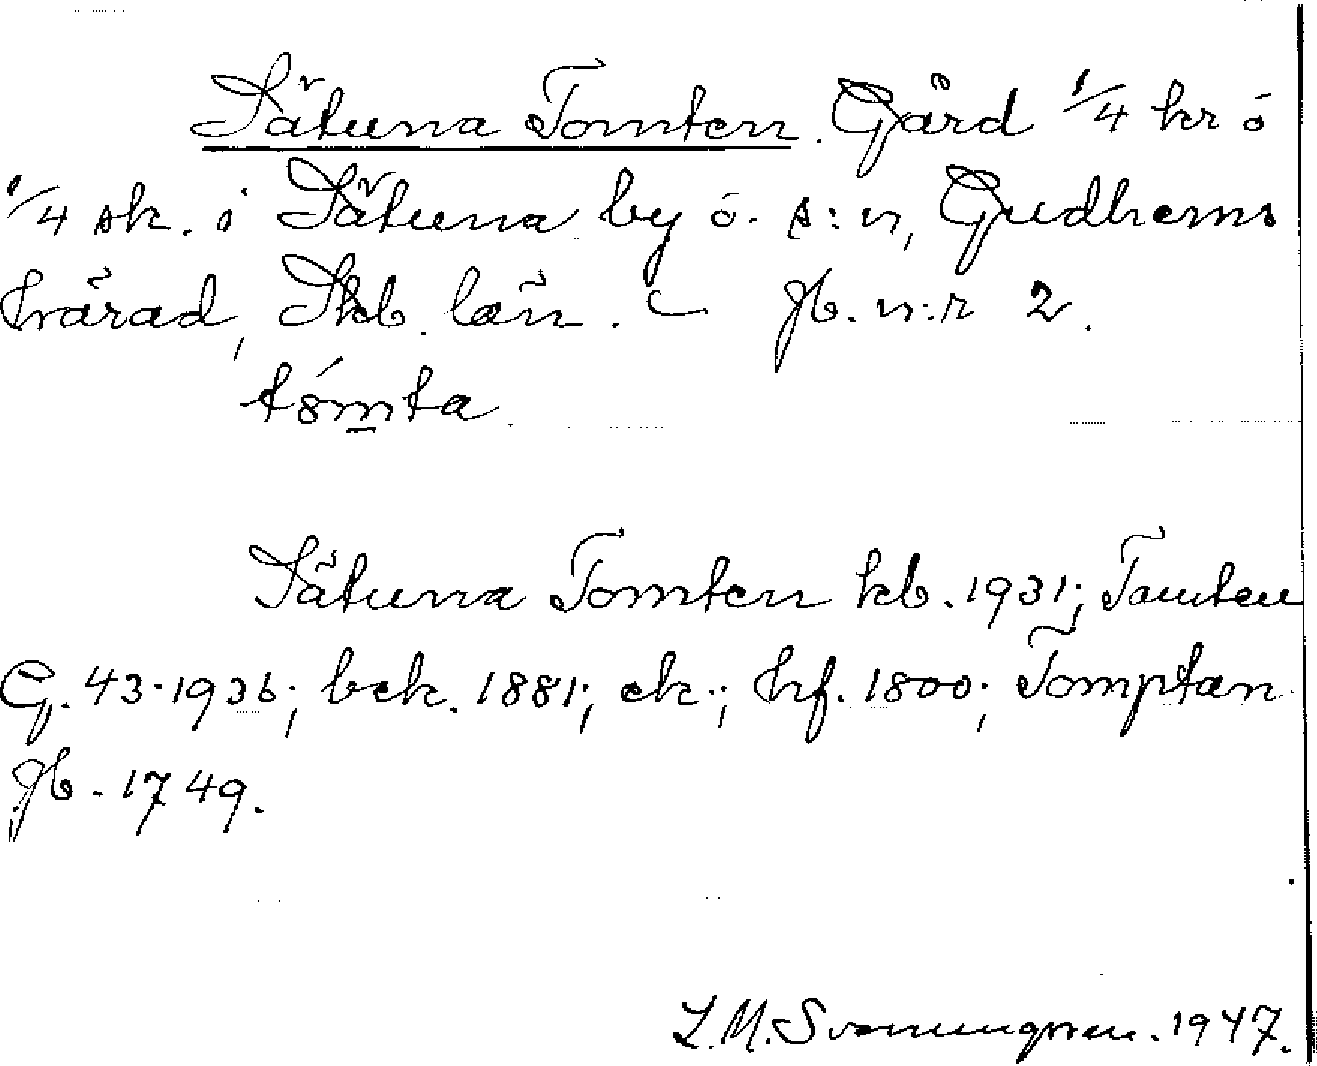 Sätuna Tomten. Gård 1/4 kr ó
1/4 sk. i Sätuna by ó. s:n, Gudhems
härad, Skb. län. jb. n:r 2.
tómta
Sätuna Tomten kb. 1931; Tomten
G. 43·1936; bek. 1881; ek.; hf. 1800; Tomptan
jb. 1749.
L.M. Svenungsson. 1947.